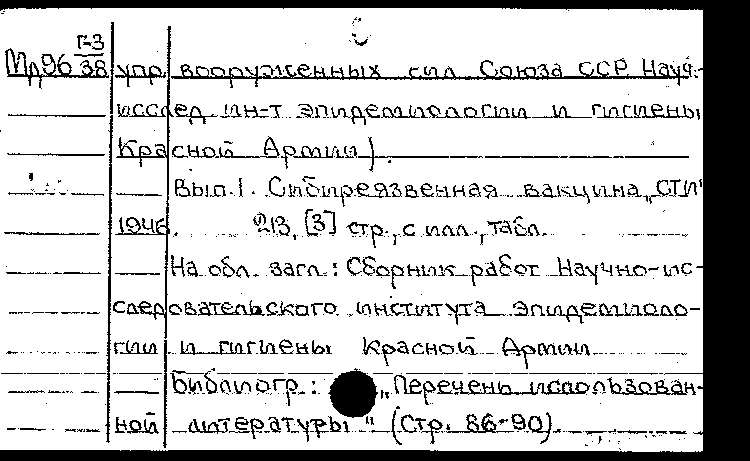 Г-3
Мд96 38 упр. вооруженных сил Союза ССР. Науч.-
исслед ин-т эпидемиологии и гигиены
Красной Армии).
Вып. 1. Сибиреязвенная вакцина „СТИ"
1946. 213, [3] стр., с илл., табл.
На обл. загл.: Сборник работ Научно-ис-
следовательского института эпидемиоло-
гии и гигиены Красной Армии
Библиогр.: „Перечень использован-
ной литературы" (Стр. 86-90).